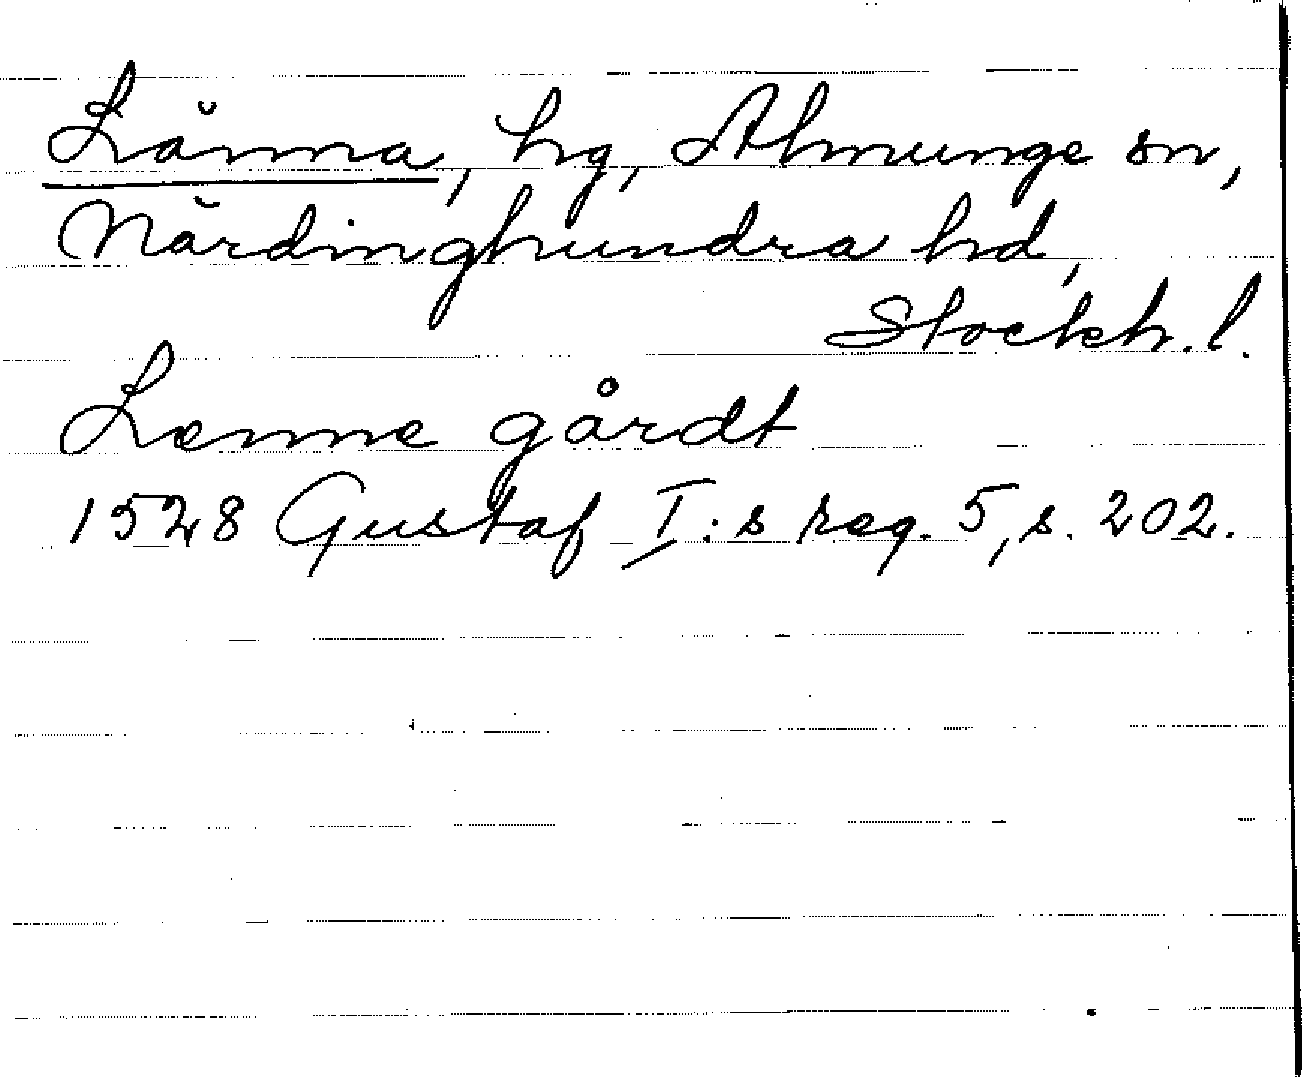 Länna, hg, Almunge sn,
Närdinghundra hd,
Stockh. l.
Lenne gårdt
1528 Gustaf I:s reg. 5, s. 202.